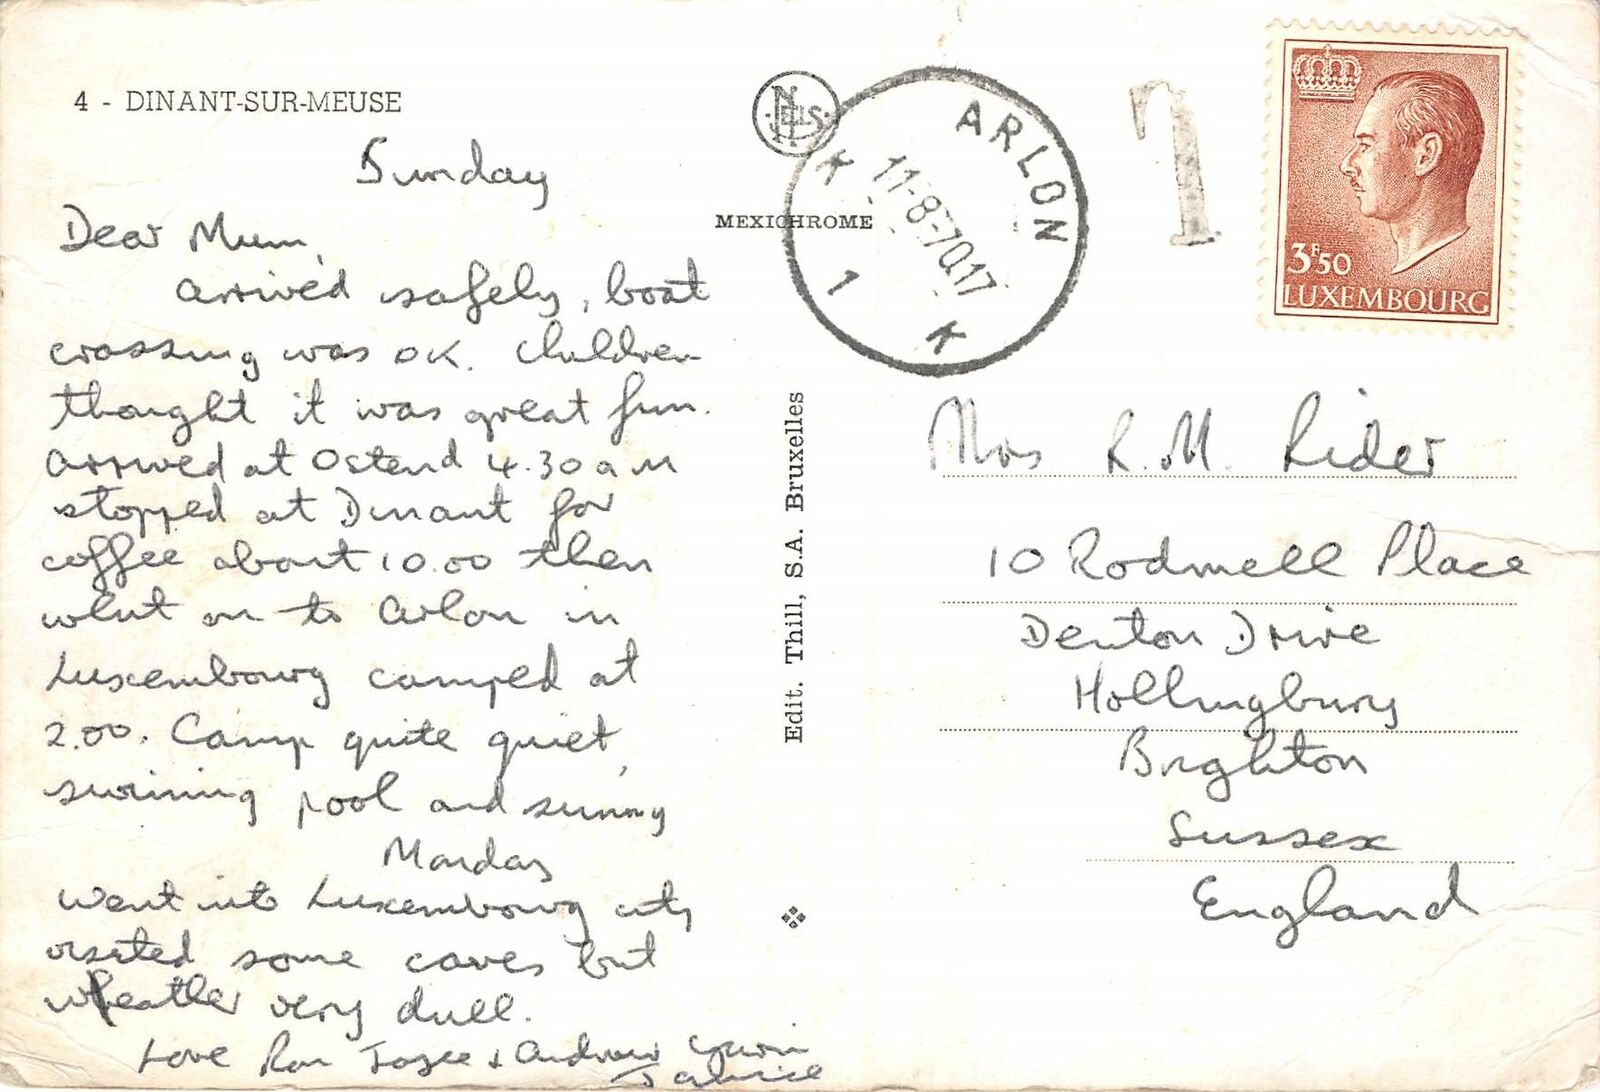 4 - DINANT-SUR-MEUSE
Sunday
Dear Mum,
arrived safely, boat
crossing was OK. Children
thought it was great fun.
arrived at Ostend 4.30 a m
stopped at Dinant for
coffee about 10.00 then
went on to Arlon in
Luxembourg camped at
2.00. Camp quite quiet,
swiming pool and sunny
Monday
went into Luxembourg city
visited some caves but
weather very dull.
Love Ron & Andrew
NELS
MEXICHROME
Edit. Thill, S.A. Bruxelles
ARLON
11-8-70 17
K 1 K
T
3F50
LUXEMBOURG
Mrs R. M. Rider
10 Rodmell Place
Denton Drive
Hollingbury
Brighton
Sussex
England